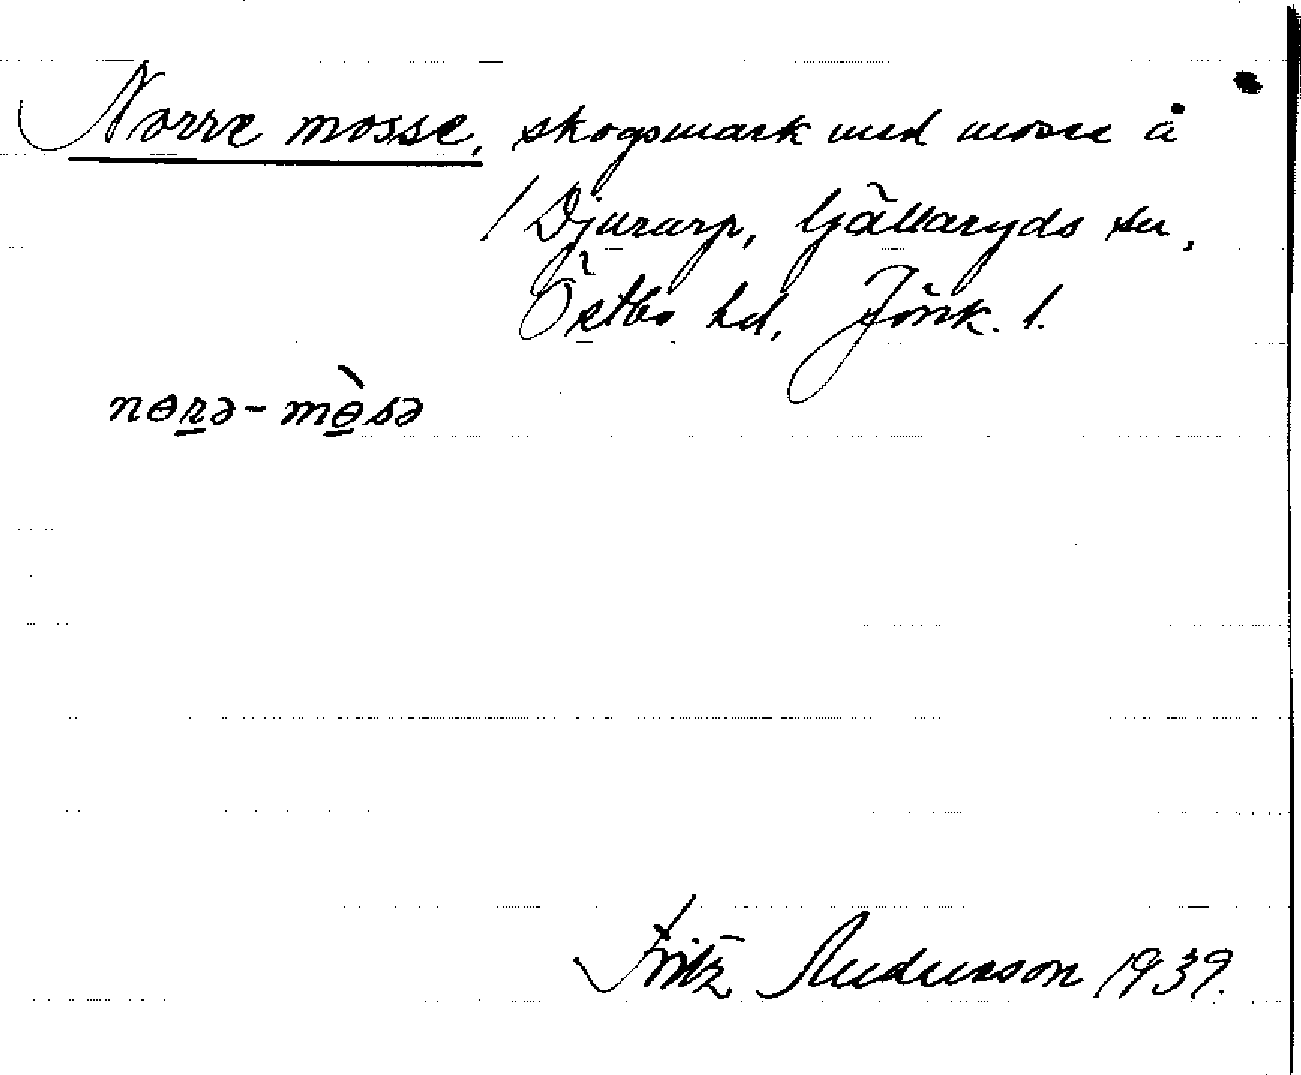 Norre mosse, skogsmark med mosse å
/ Djurarp, Gällaryds sn,
Östbo hd, Jönk. l.
nɵr̲ə-mɵ̲̀sə
Fritz Andersson 1939.